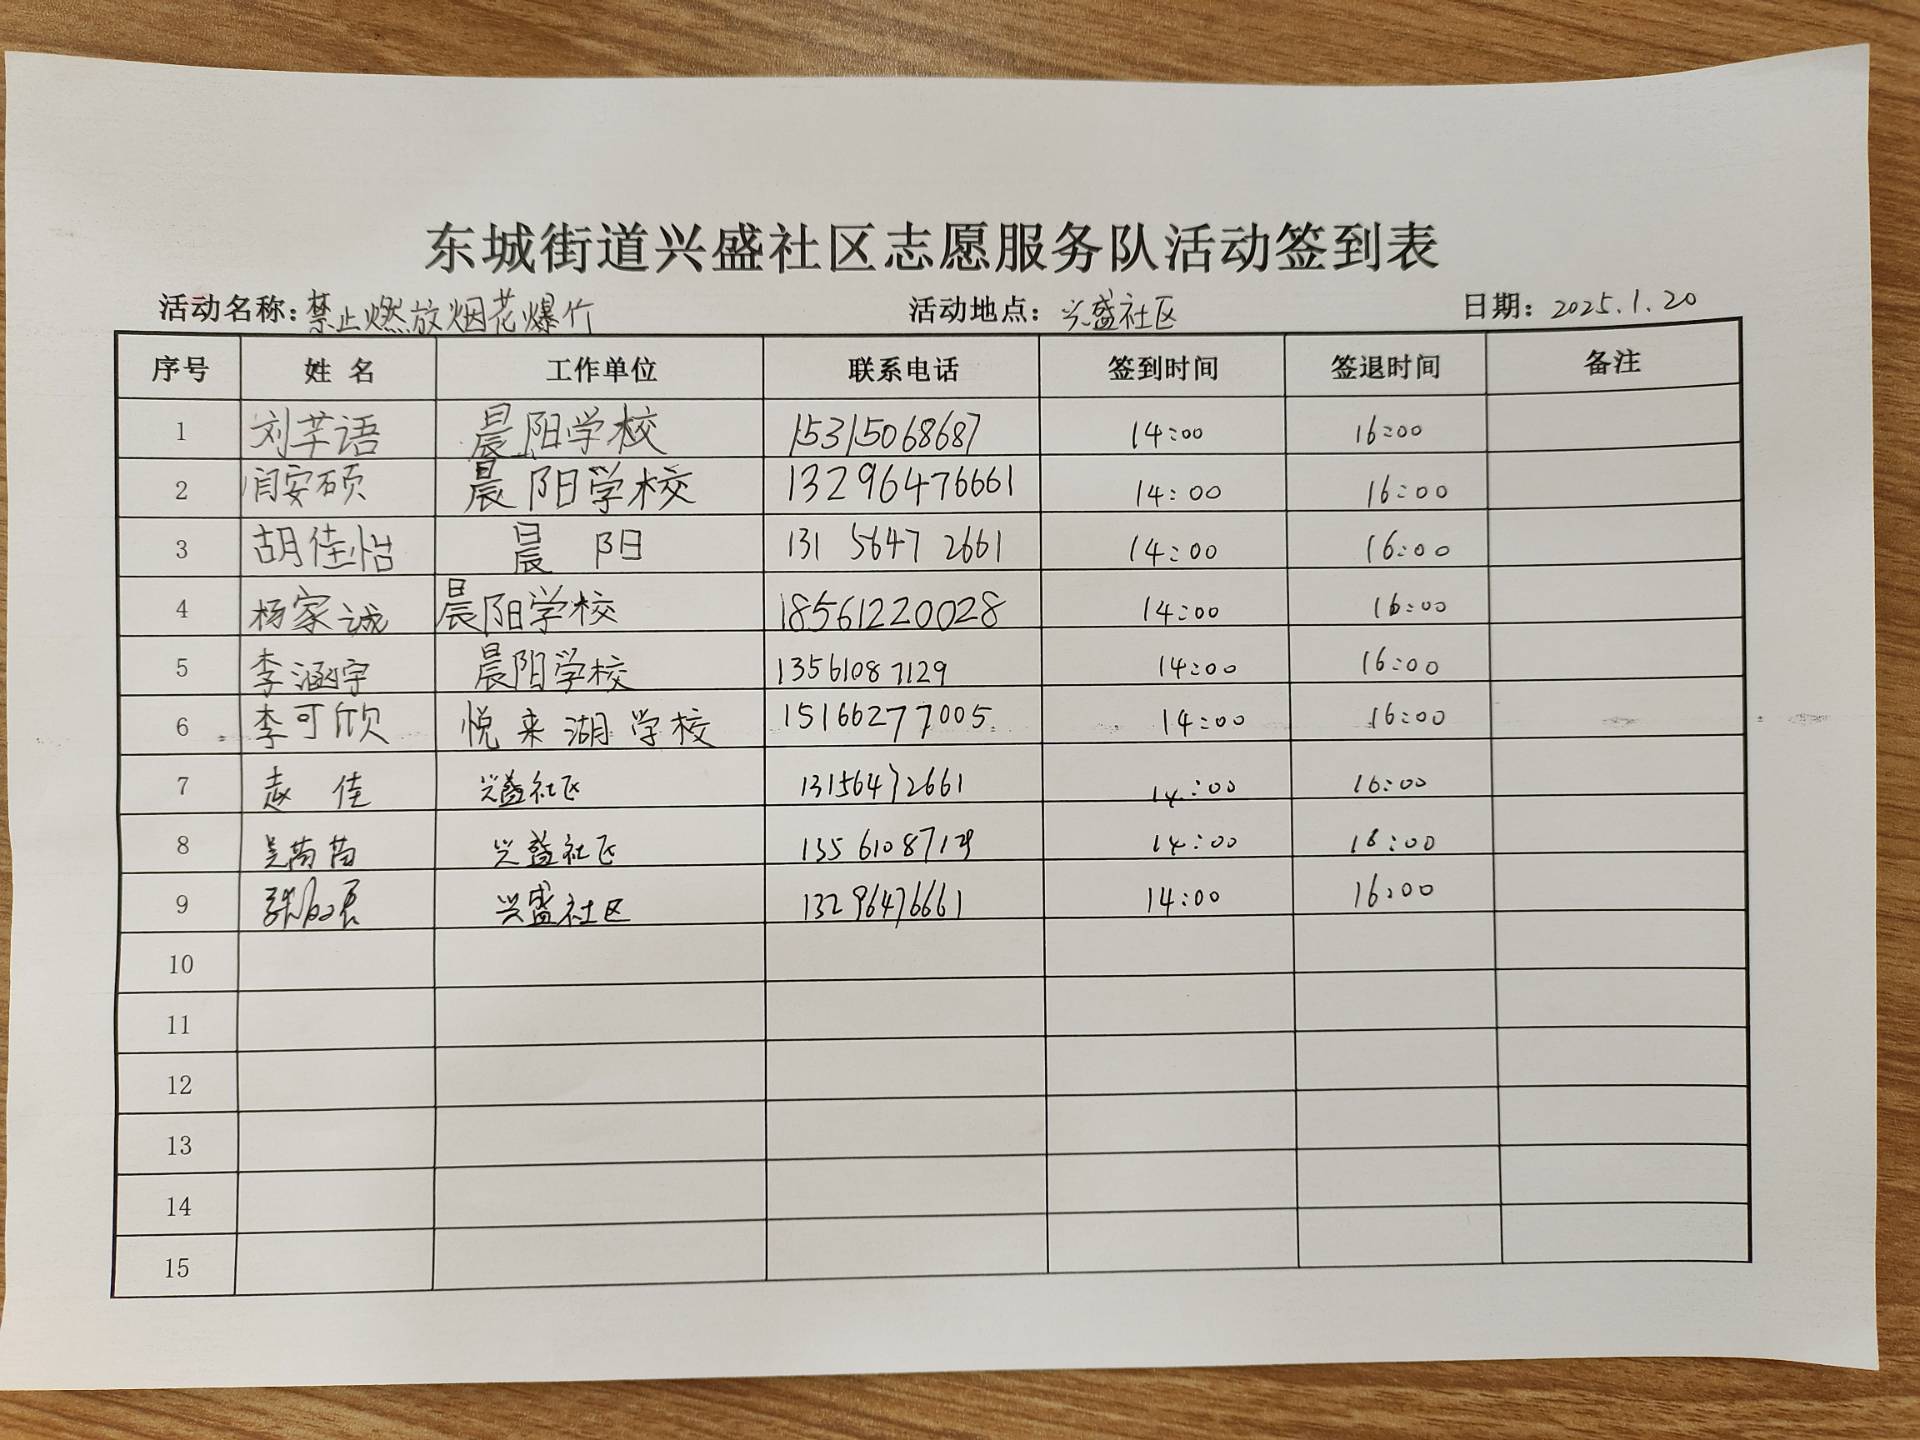 东城街道兴盛社区志愿服务队活动签到表
活动名称：禁止燃放烟花爆竹 活动地点：兴盛社区 日期：2025.1.20
序号 姓名 工作单位 联系电话 签到时间 签退时间 备注
1 刘芊语 晨阳学校 15315068687 14:00 16:00
2 闫安硕 晨阳学校 13296476661 14:00 16:00
3 胡佳怡 晨阳 131 5647 2661 14:00 16:00
4 杨家诚 晨阳学校 18561220028 14:00 16:00
5 李涵宇 晨阳学校 13561087129 14:00 16:00
6 李可欣 悦来湖学校 15166277005 14:00 16:00
7 赵佳 兴盛社区 13156472661 14:00 16:00
8 吴苗苗 兴盛社区 13561087129 14:00 16:00
9 兴盛社区 13296476661 14:00 16:00
10
11
12
13
14
15